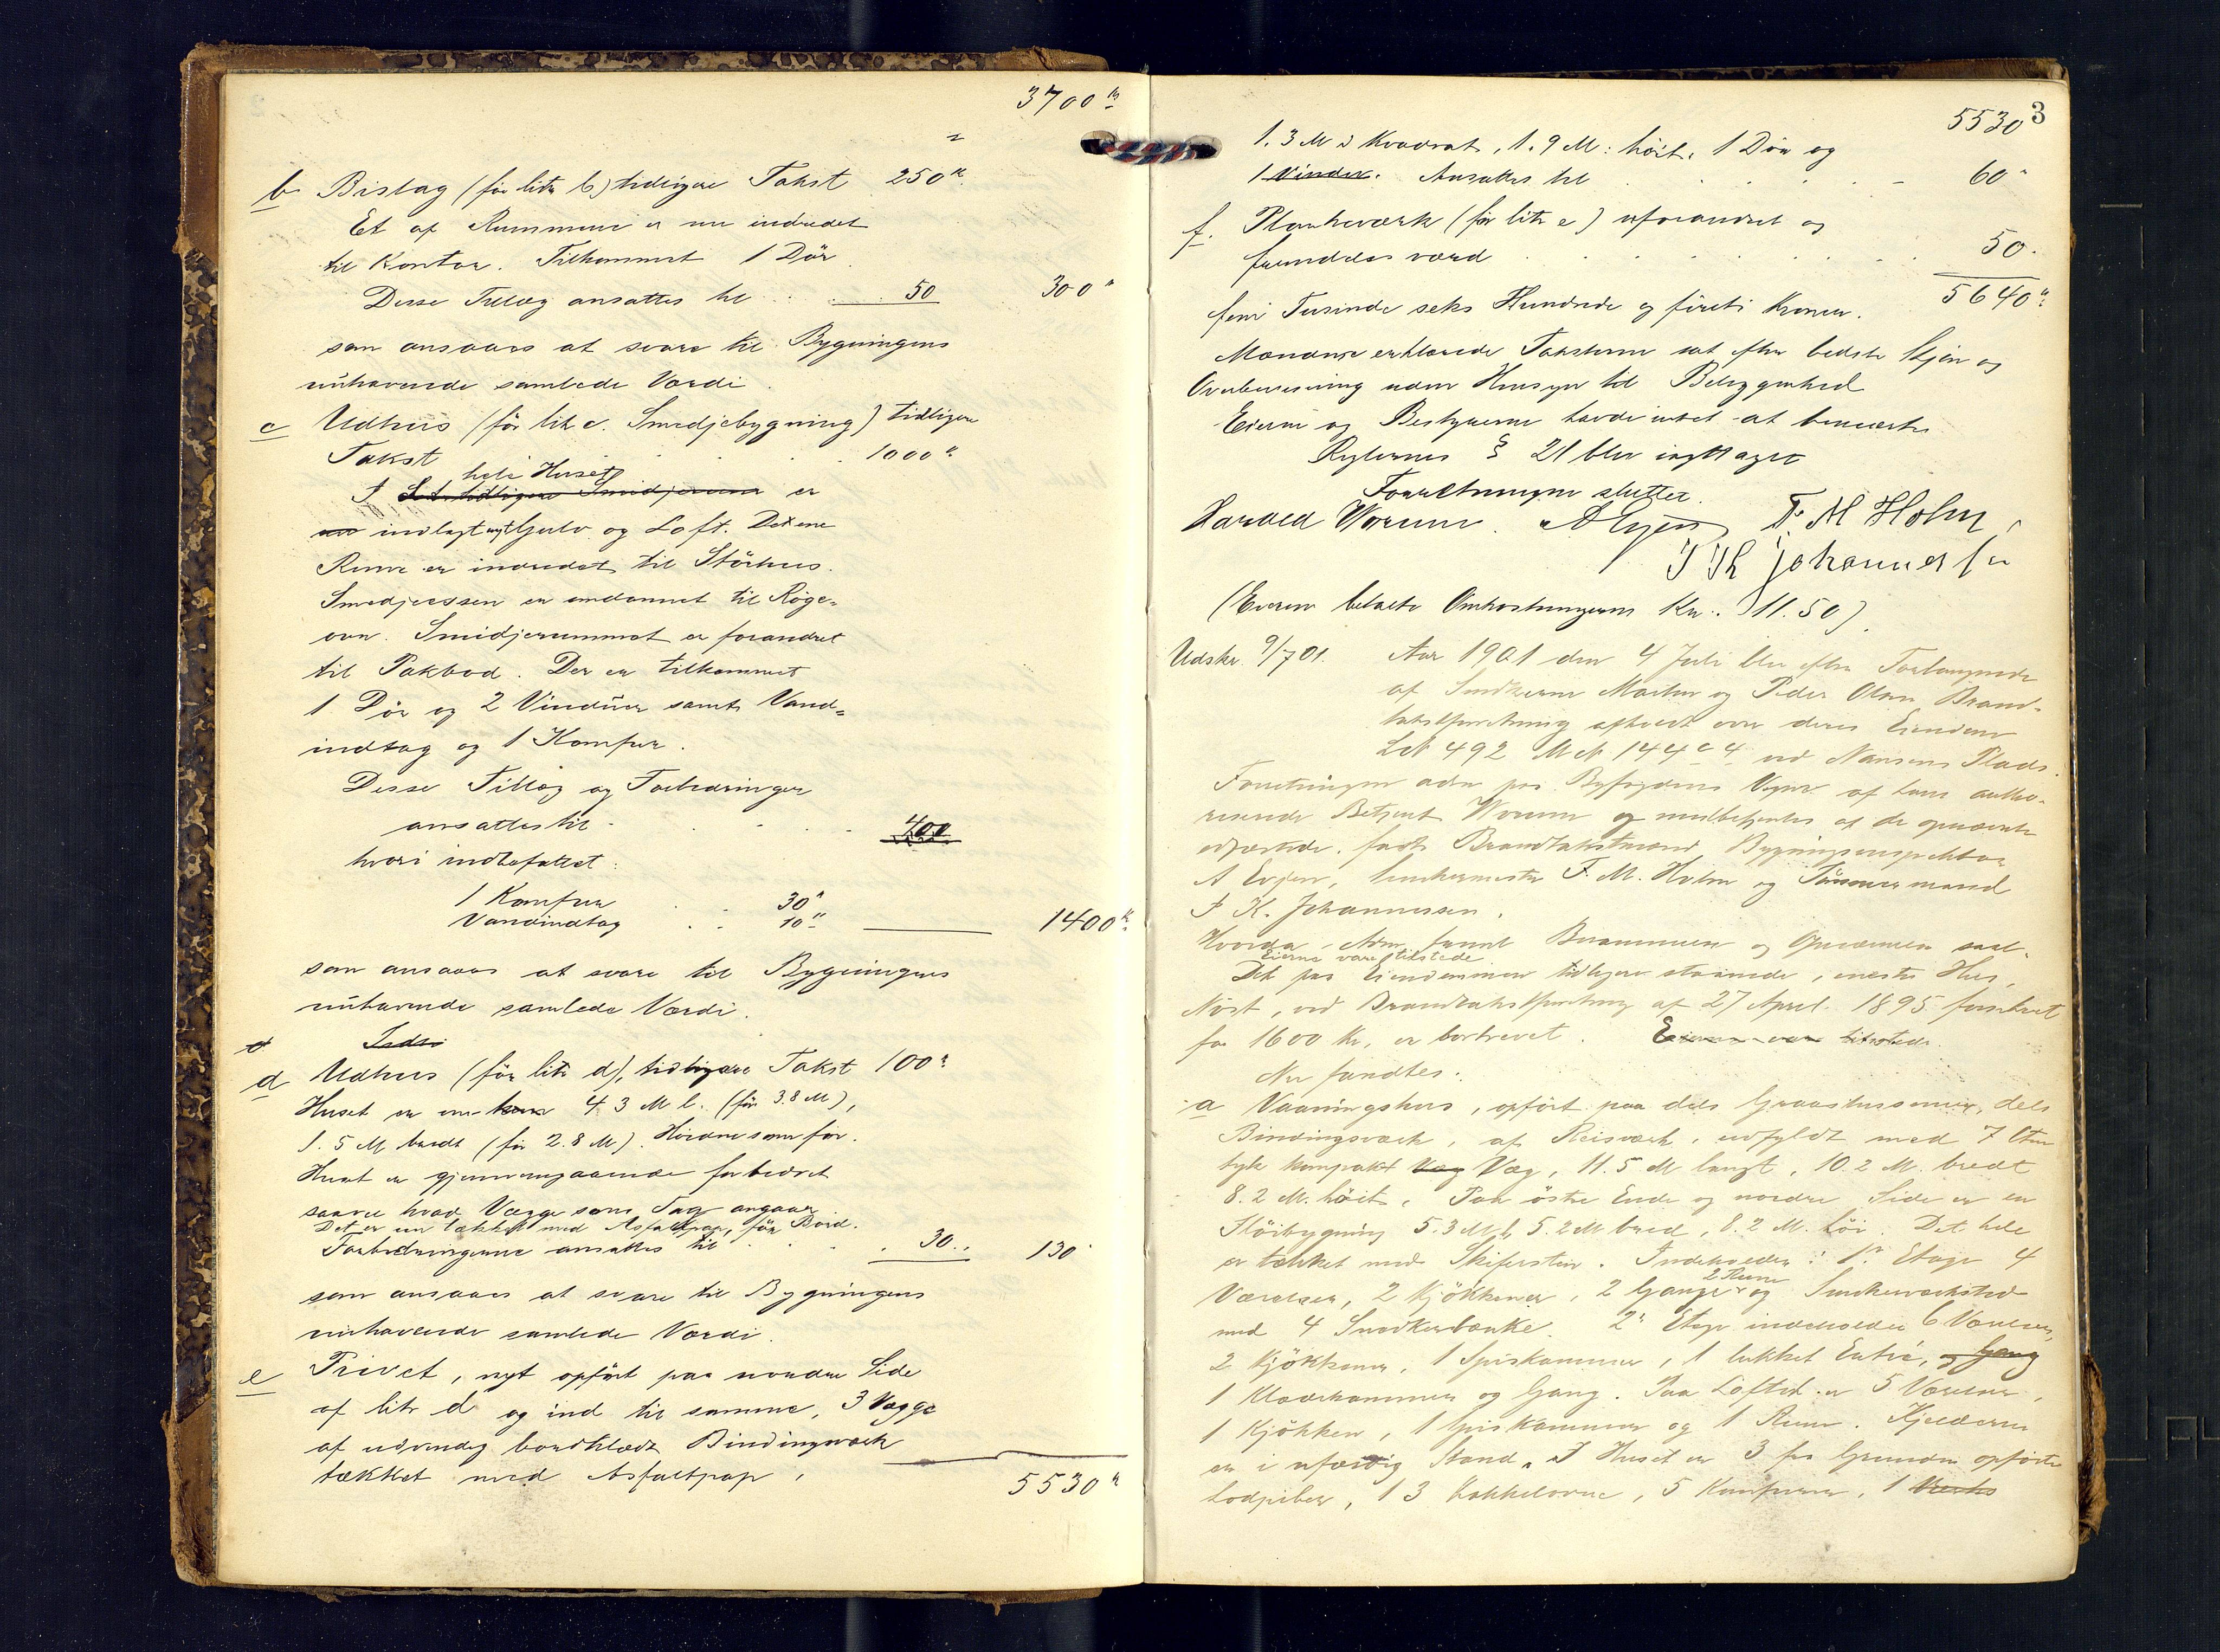 3700 kr
b Bislag (før litr b) tidligere Takst 250 kr.
Et af Rummene er nu indredet
til Kontor. Tilkommet 1 Dør
Disse Tillæg ansattes til . . 50 300 "
som ansaaes at svare til Bygningens
nuhavende samlede Værdi.
c Udhus (før litr c. Smedjebygning) tidligere
Takst . . . . 1000 "
I hele Huset er
indlagt nyt Gulv og Loft. Det ene
Rum er indredet til Störhus.
Smedjeessen er omdannet til Røge-
ovn. Smidjerummet er forandret
til Pakbod. Der er tilkommet
1 Dør og 2 Vinduer samt Vand-
indtag og 1 Komfur.
Disse Tillæg og Forbedringer
ansattes til . . . . 400
hvori indbefattet:
1 Komfur . . 30 "
Vandindtag . . 10 " 1400 kr
som ansaaes at svare til Bygningens
nuhavende samlede Værdi.
d Udhus (før litr d), tidligere Takst 100 "
Huset er nu 4.3 M l. (før 3.8 M),
1.5 M bredt (før 2.8 M). Høiden som før.
Huset er gjennemgaaende forbedret
saavel hvad Vægge som Tag angaar
Det er nu tækket med Asfaltpap, før Bord.
Forbedringerne ansattes til . . . 30 " 130 "
som ansaaes at svare til Bygningens
nuhavende samlede Værdi.
e Privet, nyt opført paa nordre Side
af litr d og ind til samme, 3 Vægge
af udvendig bordklædt Bindingsværk
tækket med Asfaltpap,
5530 kr
5530 3
1.3 M i Kvadrat, 1.9 M: høit, 1 Dør og
1 Vindu. Ansattes til . . . . . 60 "
f. Plankeværk (før litr e) uforandret og
fremdeles værd . . . . . . . 50.
5640 kr
fem Tusinde seks Hundrede og førti Kroner.
Mændene erklærede Taksterne sat efter bedste Skjøn og
Overbevisning uden Hensyn til Beliggenhed
Eierne og Bestyrerne havde intet at bemærke
Reglernes § 21 blev iagttaget
Forretningen sluttet.
Harald Worum. A Evjen F. M Holm,
I K Johannessen
(Eieren betalte Omkostningerne Kr. 11.50)
Udskr. 9/7 01. Aar 1901 den 4 Juli blev efter Forlangende
af Snedkerne Martin og Peder Olsen Brand-
takstforretning afholdt over deres Eiendom
LN 492 MN 144 c 4 ved Nansens Plads.
Forretningen adm paa Byfogdens Vegne af hans autho-
riserede Betjent Worum og medbetjentes af de opnævnte
edfæstede faste Brandtakstmænd Bygningsinspektør
A Evjen, Snekkermester F. M. Holm og Tömmermand
I K. Johannessen.
Hvorda - Adm. freml Berammelse og Opnævnelse saal.
Eierne vare tilstede
Det paa Eiendommen tidligere staaende, eneste Hus,
Nöst, ved Brandtakstforretning af 27 April 1895 forsikret
for 1600 Kr, er bortrevet. Eierne var tilstede.
Nu fandtes:
a Vaaningshus, opført paa dels Graastensmur, dels
Bindingsværk, af Reisværk, udfyldt med 7 Ctm
tyk kompakt Væg, 11.5 M langt, 10.2 M. bredt
8.2 M. høit. Paa østre Ende og nordre Side er en
Tilbygning 5.3 M l, 5.2 M bred, 8.2 M. høi. Det hele
er tækket med Skifersten. Indeholder i 1ste Etage 4
Værelser, 2 Kjökkener, 2 Gange, 2 Rum og Snekkerværksted
med 4 Snedkerbænke. 2n Etage indeholder 6 Værelser,
2 Kjökkener, 1 Spiskammer, 1 lukket Entré, og Gang
1 Klædekammer og Gang. Paa Loftet er 5 Værelser,
1 Kjökken, 1 Spiskammer og 1 Rum. Kjelderen
er i ufærdig Stand. I Huset er 3 fra Grunden opførte
Lodpiber, 13 Kakkelovne, 5 Komfurer, 1